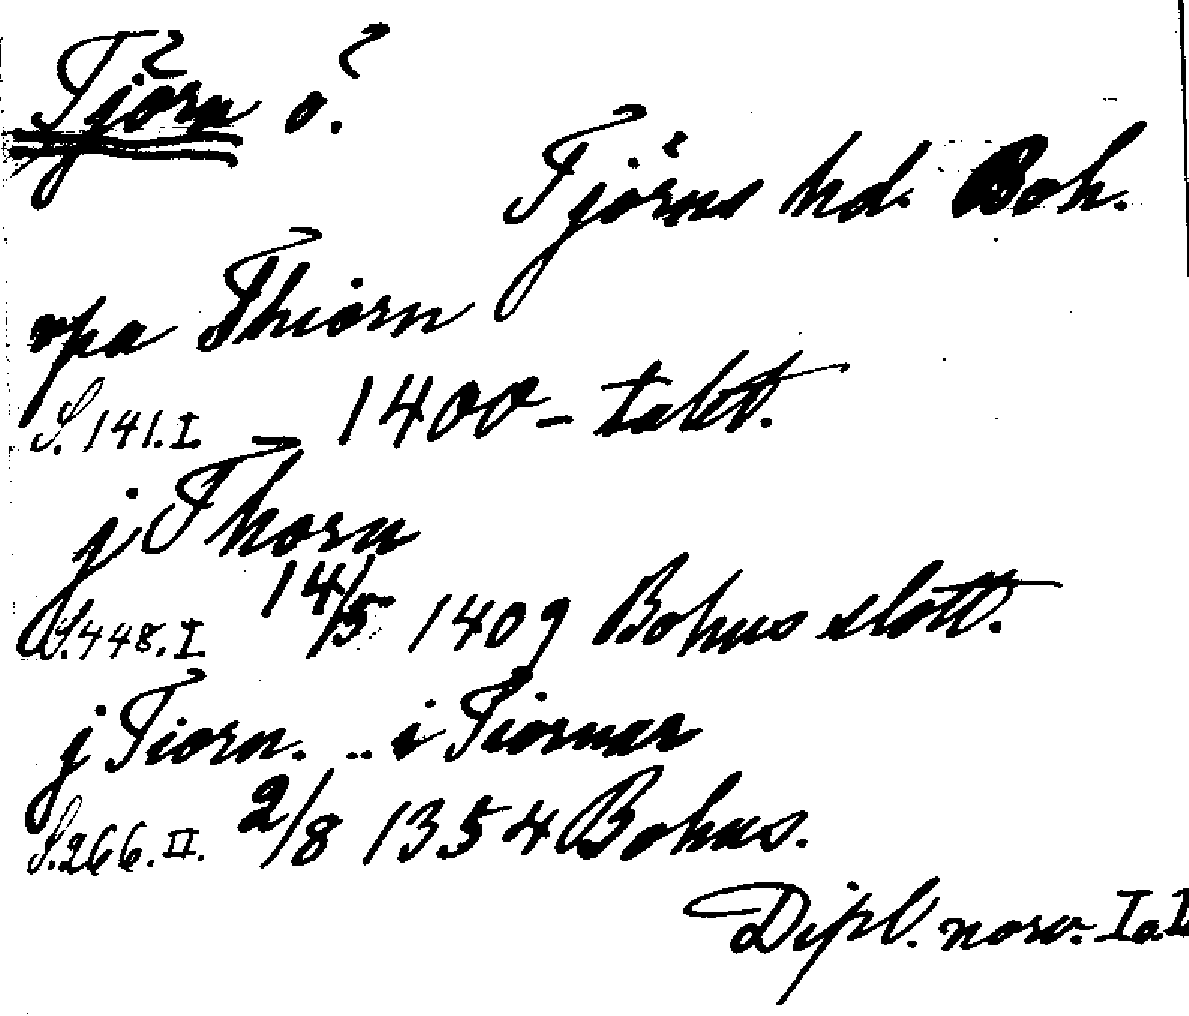 Tjörn ö.
Tjörns hd. Boh.
vpa Thiorn
S. 141. I. 1400-talet.
j Thorn
S. 448. I. 14/5 1409 Bohus slott.
j Tiorn. .. i Tiornar
S. 266. II. 2/8 1354 Bohus.
Dipl. norv. I a